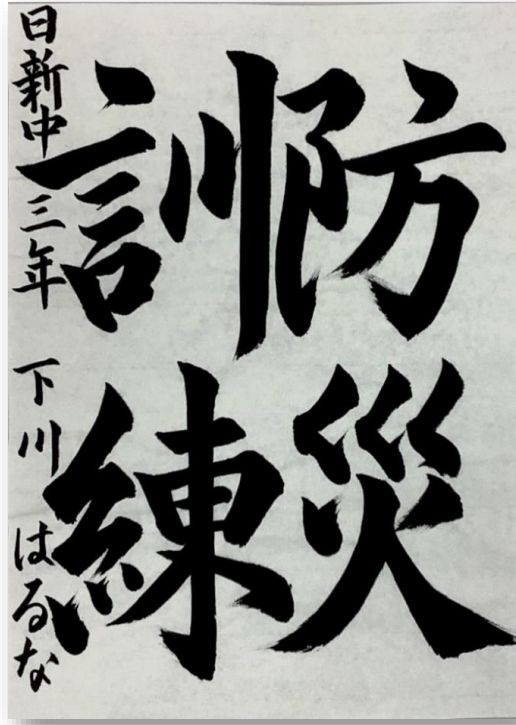 防災
訓練
日新中三年 下川はるな